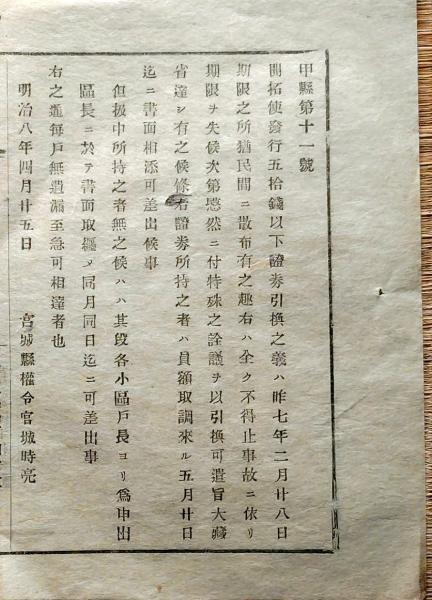 甲縣第十一號
開拓使發行五拾錢以下證券引換之義ハ昨七年二月廿八日
期限之所猶民間ニ散布有之趣右ハ全ク不得止事故ニ依リ
期限ヲ失候次第愍然ニ付特殊之詮議ヲ以引換可遣旨大藏
省達シ有之候條右證券所持之者ハ員額取調來ル五月廿日
迄ニ書面相添可差出候事
但扱中所持之者無之候ハヽ其段各小區戸長ヨリ爲申出
區長ニ於テ書面取纒メ同月同日迄ニ可差出事
右之通毎戸無遺漏至急可相達者也
明治八年四月廿五日　宮城縣權令宮城時亮